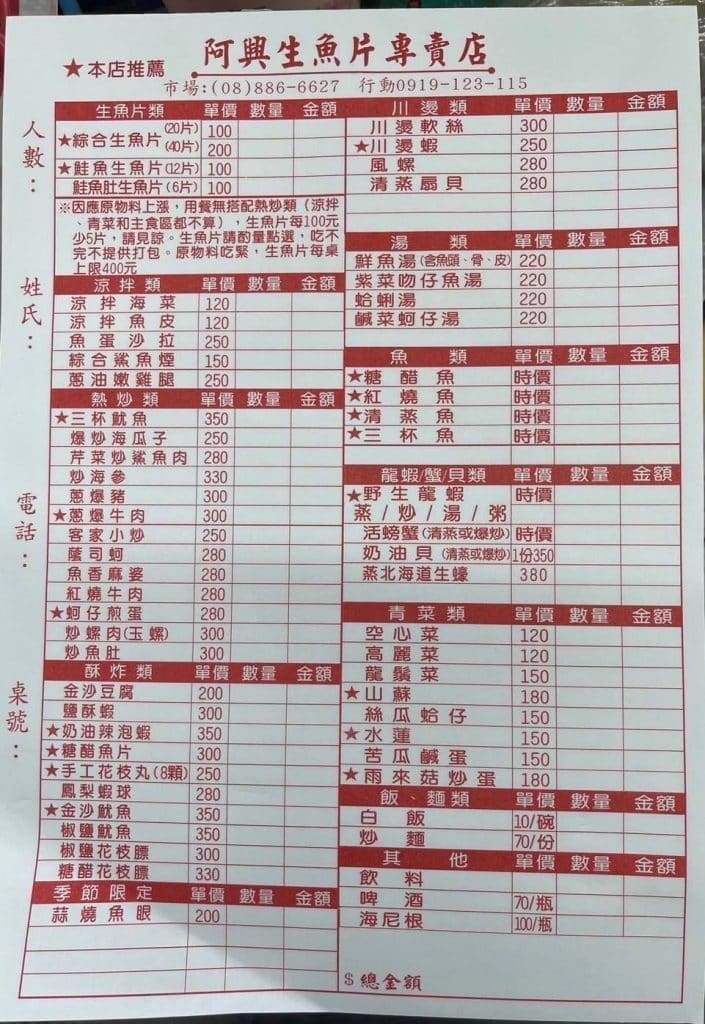 阿興生魚片專賣店
★本店推薦
市場:(08)886-6627 行動0919-123-115
人數：
姓氏：
電話：
桌號：
生魚片類 單價 數量 金額
★綜合生魚片(20片) 100
(40片) 200
★鮭魚生魚片(12片) 100
鮭魚肚生魚片(6片) 100
※因應原物料上漲，用餐無搭配熱炒類（涼拌
、青菜和主食區都不算），生魚片每100元
少5片，請見諒。生魚片請酌量點選，吃不
完不提供打包。原物料吃緊，生魚片每桌
上限400元
涼拌類 單價 數量 金額
涼拌海菜 120
涼拌魚皮 120
魚蛋沙拉 250
綜合鯊魚煙 150
蔥油嫩雞腿 250
熱炒類 單價 數量 金額
★三杯魷魚 350
爆炒海瓜子 250
芹菜炒鯊魚肉 280
炒海參 330
蔥爆豬 300
★蔥爆牛肉 300
客家小炒 250
蔭司蚵 280
魚香麻婆 280
紅燒牛肉 280
★蚵仔煎蛋 280
炒螺肉(玉螺) 300
炒魚肚 300
酥炸類 單價 數量 金額
金沙豆腐 200
鹽酥蝦 300
★奶油辣泡蝦 350
★糖醋魚片 300
★手工花枝丸(8顆) 250
鳳梨蝦球 280
★金沙魷魚 350
椒鹽魷魚 350
椒鹽花枝膘 300
糖醋花枝膘 330
季節限定 單價 數量 金額
蒜燒魚眼 200
川燙類 單價 數量 金額
川燙軟絲 300
★川燙蝦 250
風螺 280
清蒸扇貝 280
湯類 單價 數量 金額
鮮魚湯(含魚頭、骨、皮) 220
紫菜吻仔魚湯 220
蛤蜊湯 220
鹹菜蚵仔湯 220
魚類 單價 數量 金額
★糖醋魚 時價
★紅燒魚 時價
★清蒸魚 時價
★三杯魚 時價
龍蝦/蟹/貝類 單價 數量 金額
★野生龍蝦 時價
蒸/炒/湯/粥
活螃蟹(清蒸或爆炒) 時價
奶油貝(清蒸或爆炒) 1份350
蒸北海道生蠔 380
青菜類 單價 數量 金額
空心菜 120
高麗菜 120
龍鬚菜 150
★山蘇 180
絲瓜蛤仔 150
★水蓮 150
苦瓜鹹蛋 150
★雨來菇炒蛋 180
飯、麵類 單價 數量 金額
白飯 10/碗
炒麵 70/份
其他 單價 數量 金額
飲料
啤酒 70/瓶
海尼根 100/瓶
$總金額